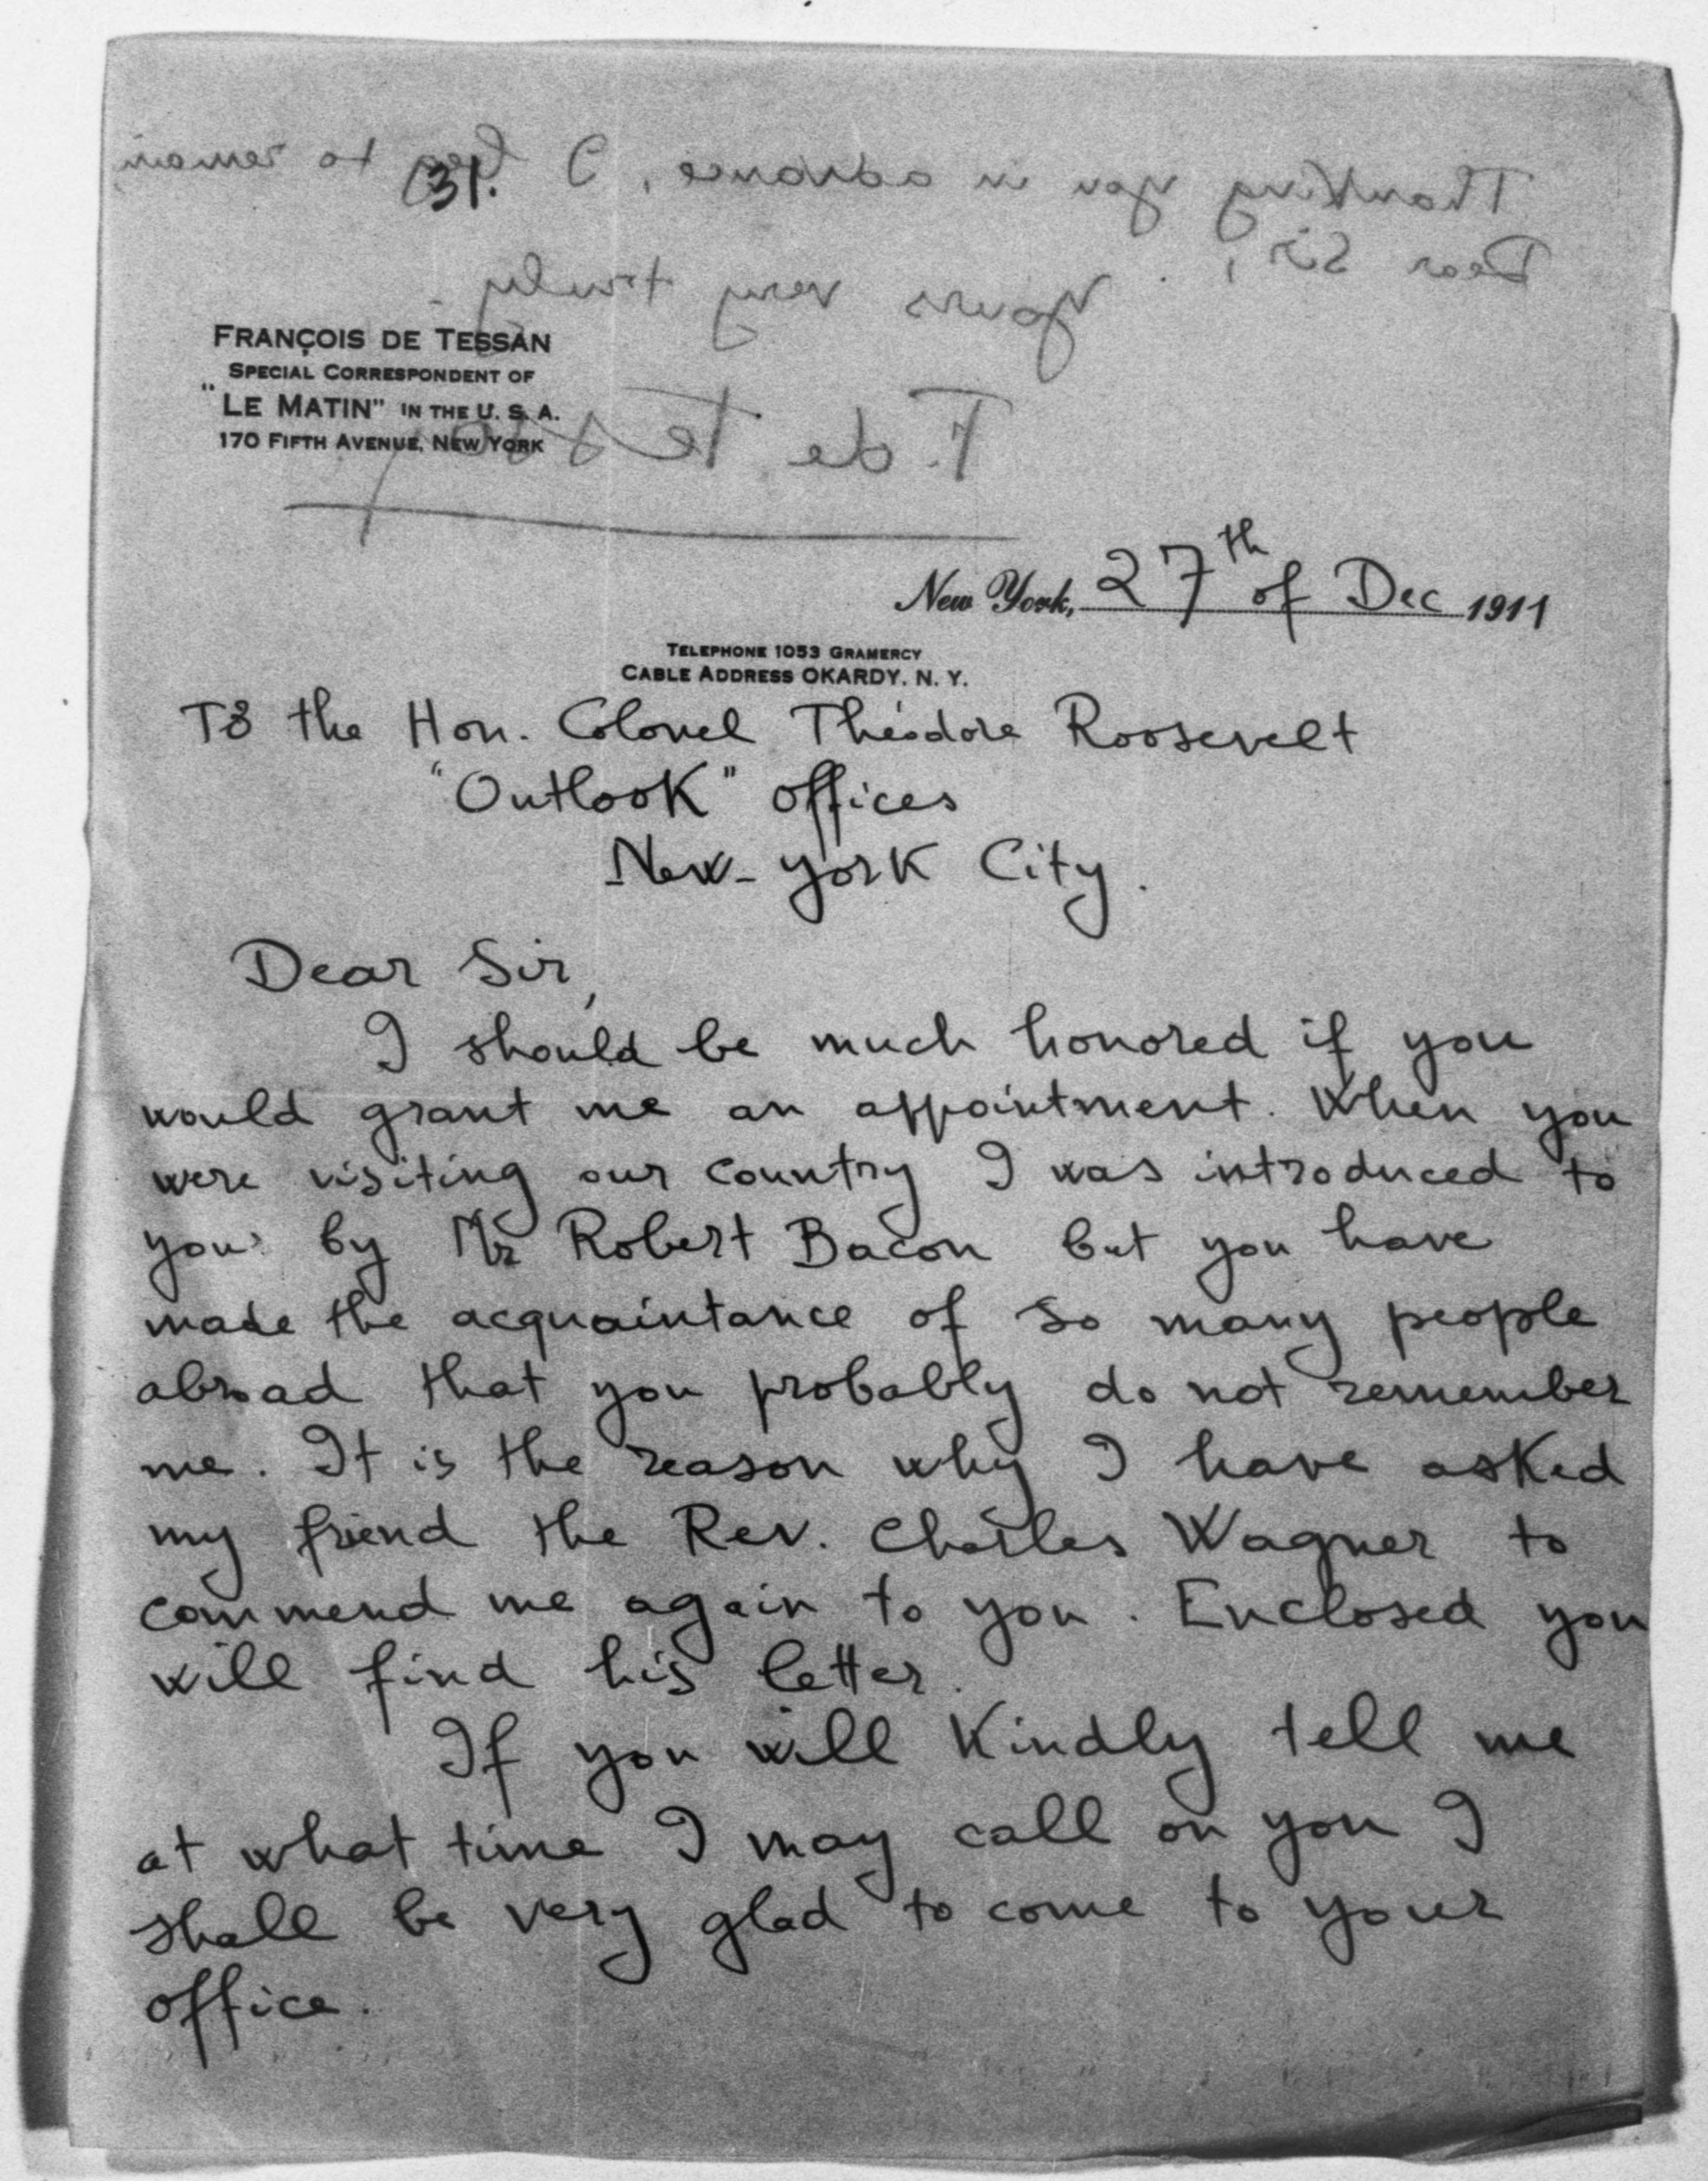 Thanking you in advance, I beg to remain,
Dear Sir,
Yours very truly
F. de Tessan
31.
FRANÇOIS DE TESSAN
SPECIAL CORRESPONDENT OF
"LE MATIN" IN THE U. S. A.
170 FIFTH AVENUE, NEW YORK
New York, 27th of Dec 1911
TELEPHONE 1053 GRAMERCY
CABLE ADDRESS OKARDY. N. Y.
To the Hon. Colonel Théodore Roosevelt
"Outlook" offices
New-York City.
Dear Sir,
I should be much honored if you
would grant me an appointment. When you
were visiting our country I was introduced to
you by Mr Robert Bacon but you have
made the acquaintance of so many people
abroad that you probably do not remember
me. It is the reason why I have asked
my friend the Rev. Charles Wagner to
commend me again to you. Enclosed you
will find his letter.
If you will Kindly tell me
at what time I may call on you I
shall be very glad to come to your
office.